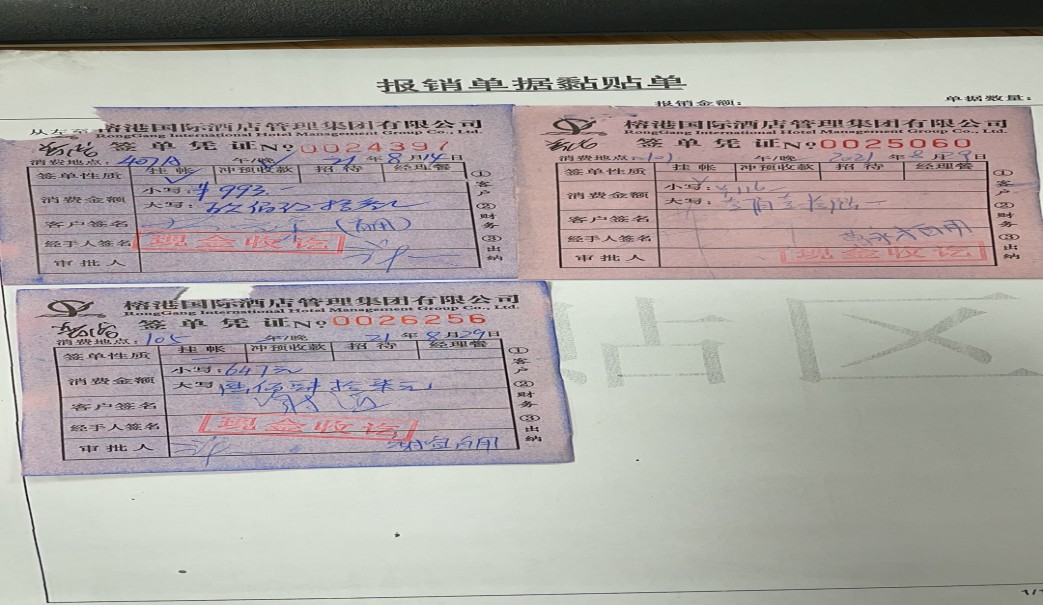 报销单据黏贴单
报销金额:
单据数量:
从左至
榕港国际酒店管理集团有限公司
RongGang International Hotel Management Group Co., Ltd.
签单凭证 № 0024397
消费地点: 401A 年/晚 21年8月14日
签单性质 挂帐 冲预收款 招待 经理签
消费金额 小写: ¥993.-
大写:
客户签名
经手人签名 现金收讫
审批人
①客户②财务③出纳
榕港国际酒店管理集团有限公司
RongGang International Hotel Management Group Co., Ltd.
签单凭证 № 0025060
消费地点: 年/晚 2021年8月 日
签单性质 挂帐 冲预收款 招待 经理签
消费金额 小写: ¥116
大写:
客户签名
经手人签名
审批人 现金收讫
①客户②财务③出纳
榕港国际酒店管理集团有限公司
RongGang International Hotel Management Group Co., Ltd.
签单凭证 № 0026256
消费地点: 105 年/晚 21年8月29日
签单性质 挂帐 冲预收款 招待 经理签
消费金额 小写: 647元
大写: 陆佰肆拾柒元
客户签名
经手人签名 现金收讫
审批人
①客户②财务③出纳
贴区
1/1